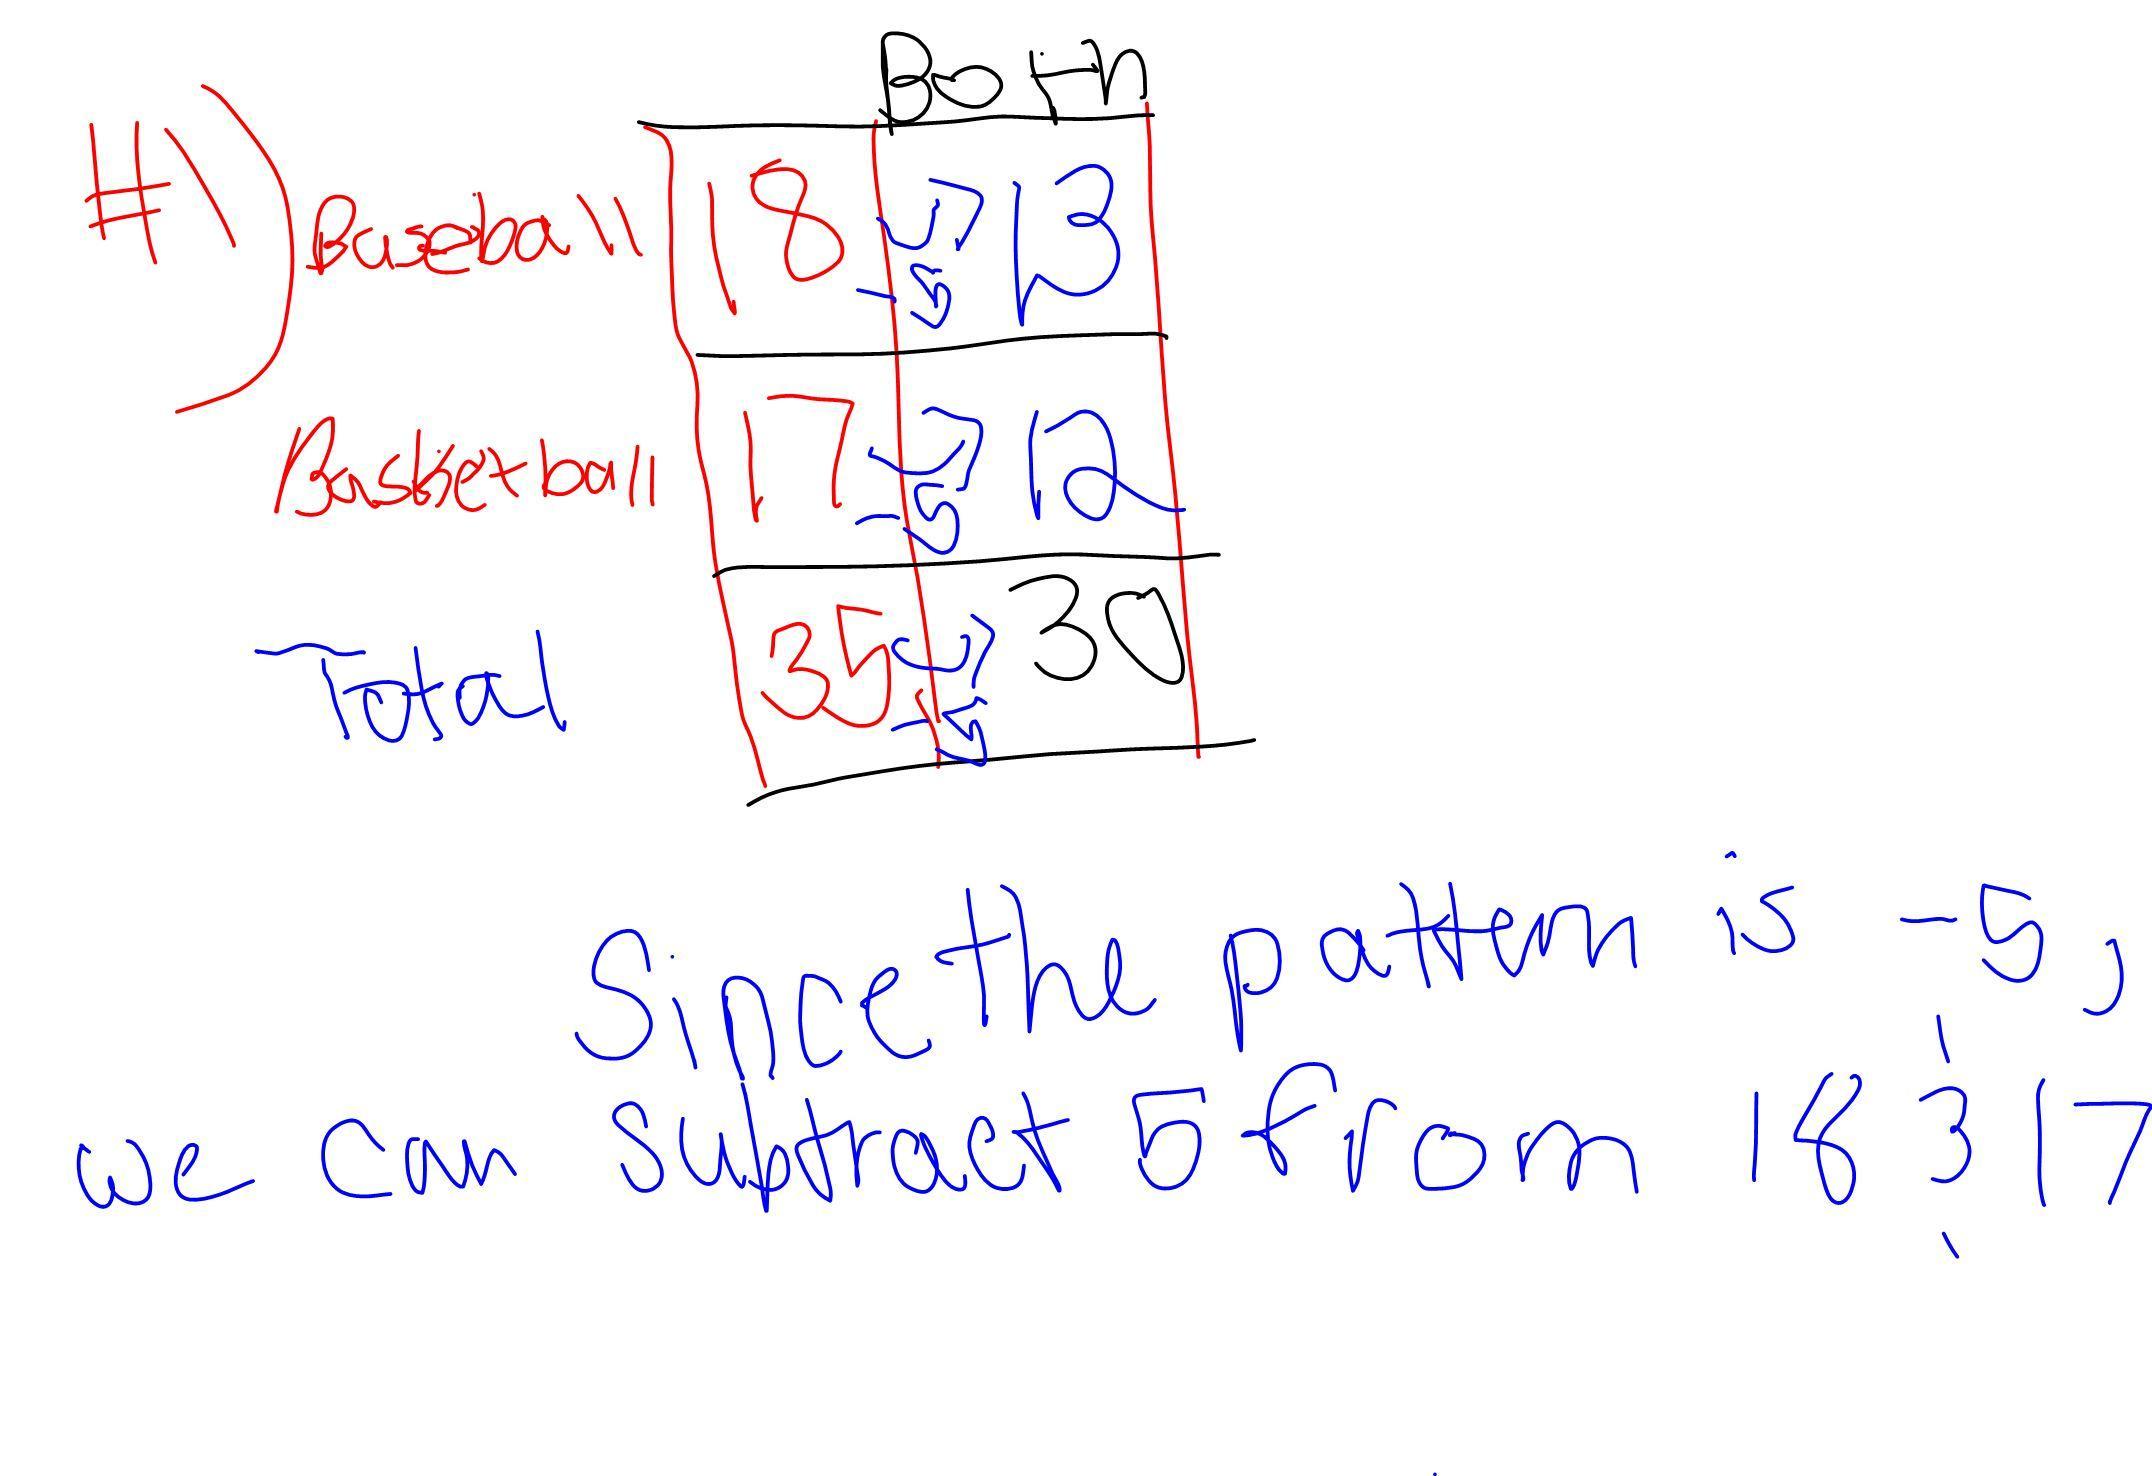 Both
#1) Baseball 18 -5 13
Basketball 17 -5 12
Total 35 -5 30
Since the pattern is -5,
we can subtract 5 from 18 & 17